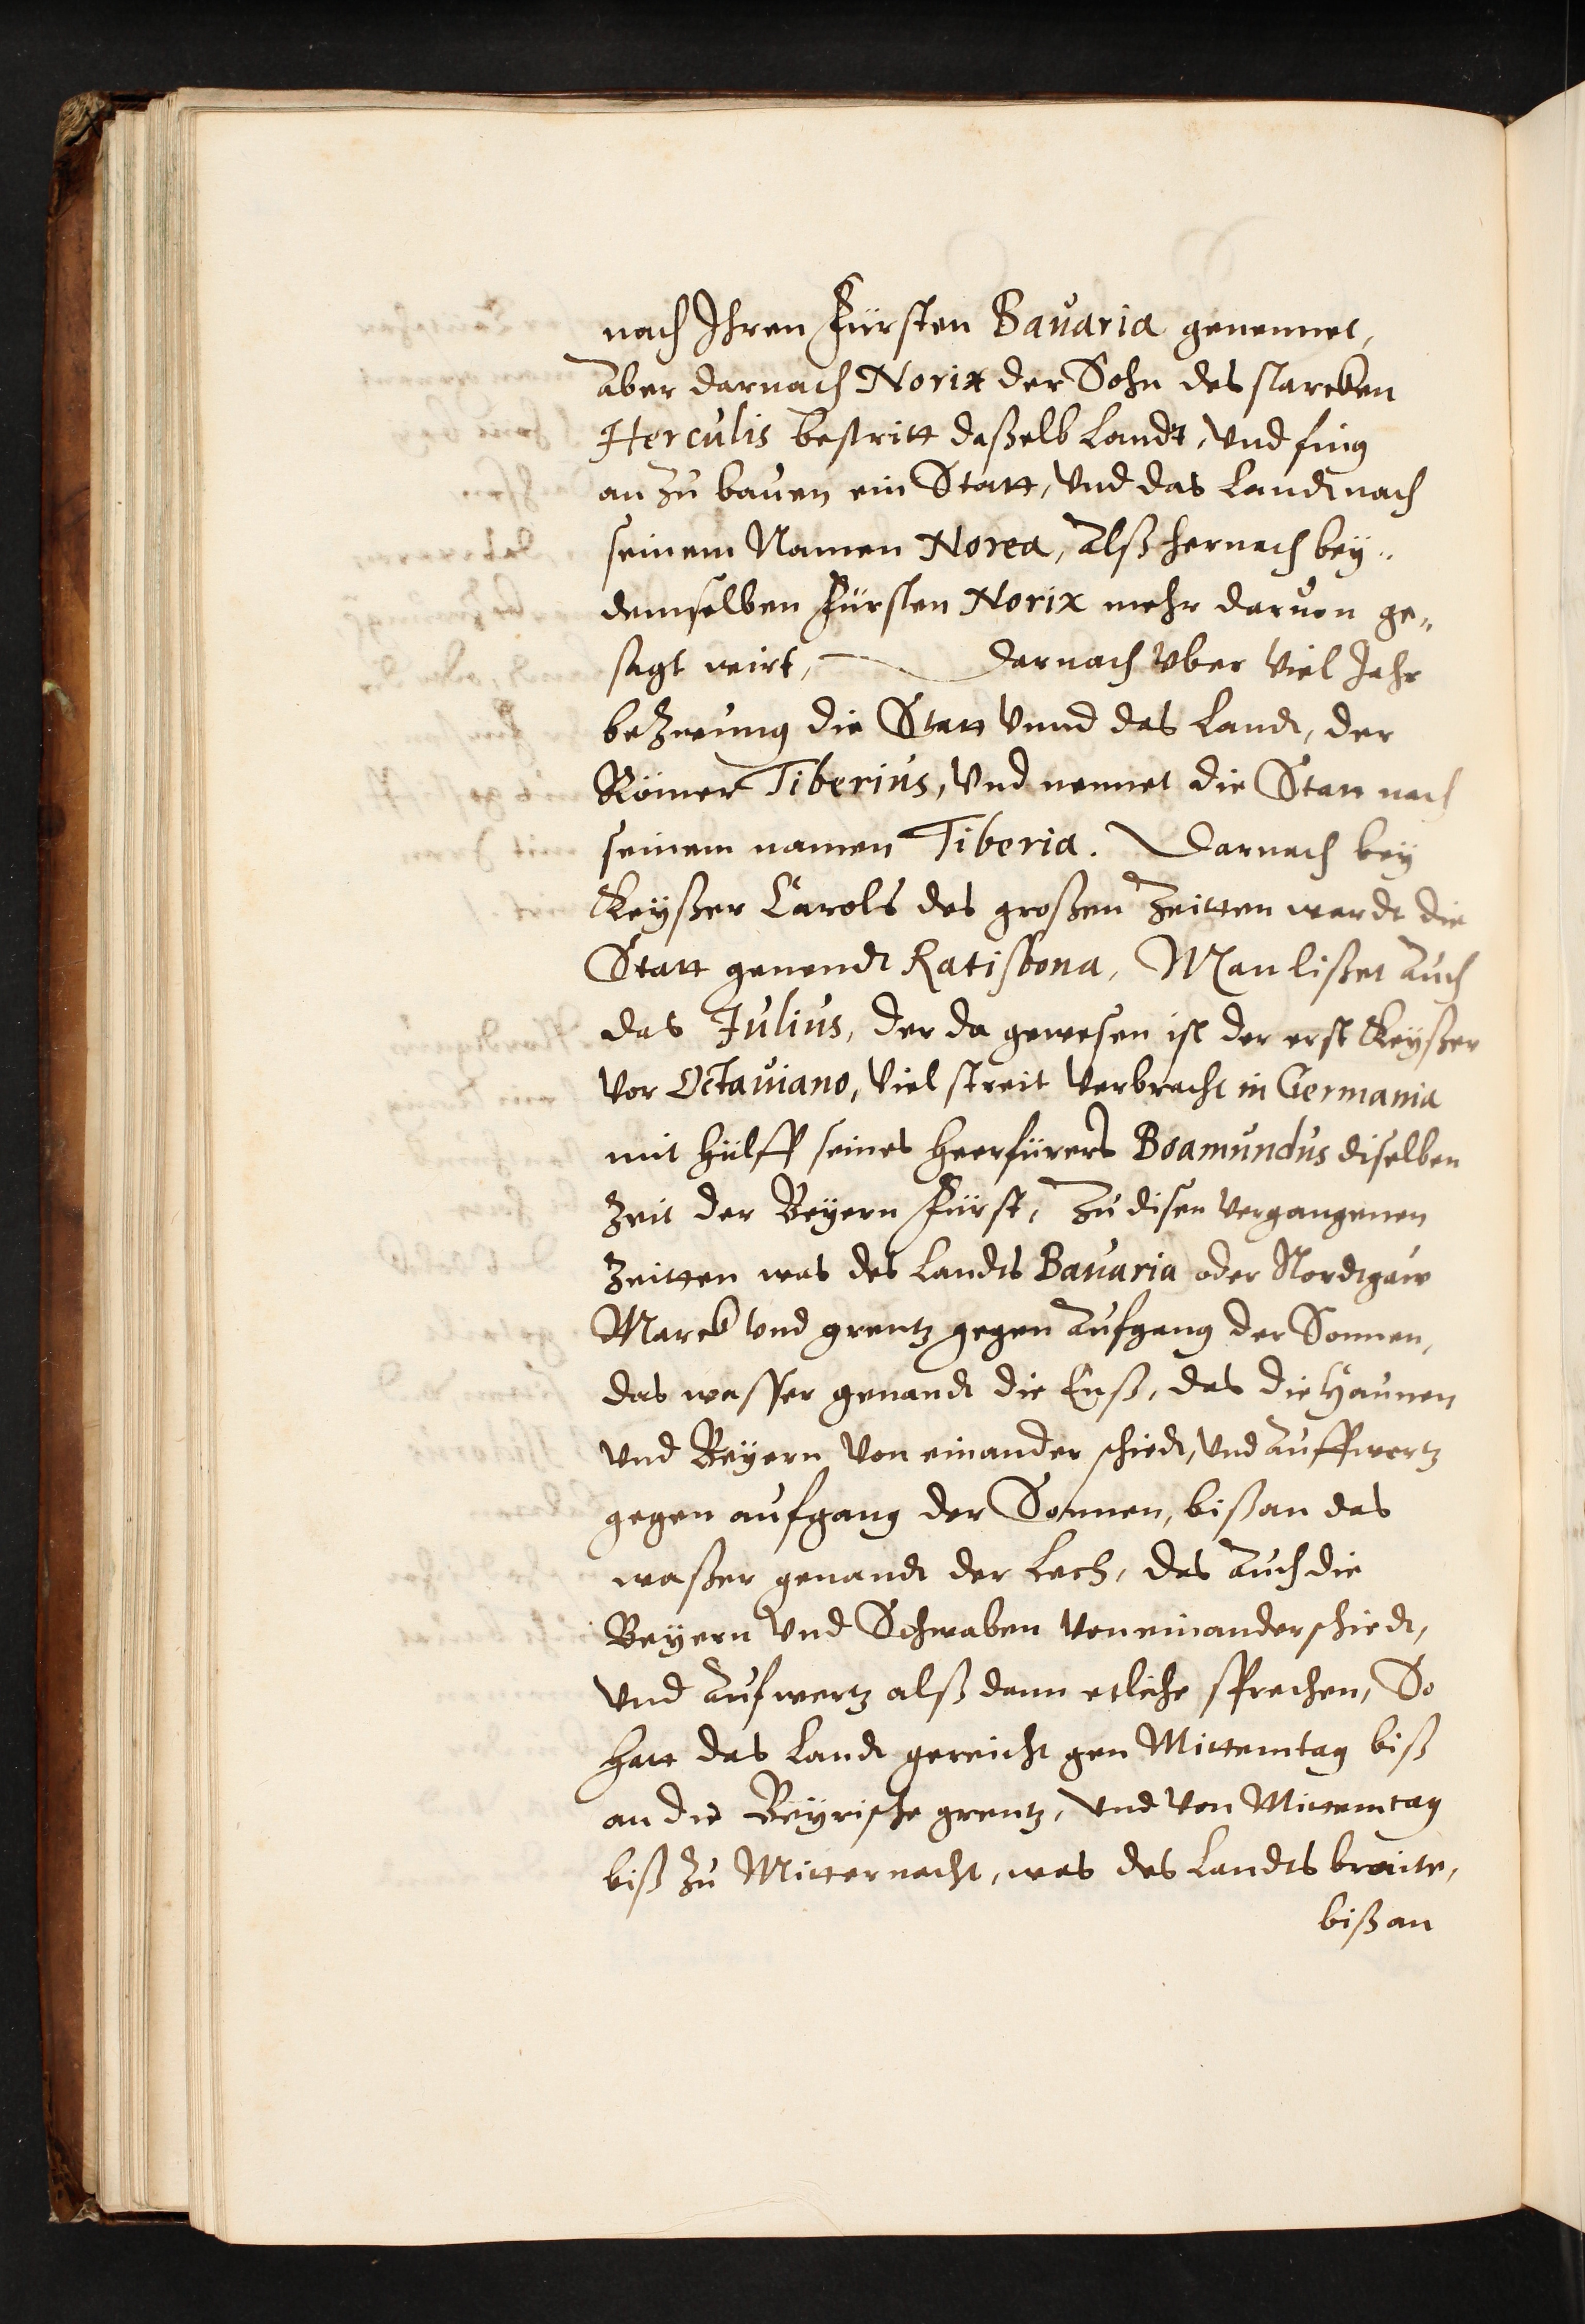 nach Ihren Fürsten Bauaria genennet,
Aber darnach Norix der Sohn des starcken
Herculis bestritt daßelb Landt, Vnd fing
an zu bauen ein Statt, Vnd das Landt nach
seinem Namen Norea, Alß hernach bey„
demselben Fürsten Norix mehr daruon ge„
sagt wirt, Darnach Vber Viel Jahr
beZwung die Statt Vnnd das Landt, der
Römer Tiberius, Vnd nennet die Statt nach
seinem namen Tiberia. Darnach bey
Keyßer Carols des großen Zeitten wardt die
Statt genendt Ratisbona, Man lißet Auch
das Julius, der da gewesen ist der erst Keyßer
Vor Octauiano, Viel streit Verbracht in Germania
mit hülff seines heerfürers Boamundus diselben
Zeit der Beyern Fürst, Zu disen Vergangenen
Zeitten was des Landts Bauaria oder Nordtgaw
Marck Vnd grentz gegen Aufgang der Sonnen,
das wasser genandt die Enß, das die Haunen
Vnd Beyern Von einander schiedt, Vnd Auffwertz
gegen aufgang der Sonnen, biß an das
waßer genandt der Lech, das Auch die
Beyern Vnd Schwaben Von einander schiedt,
Vnd Aufwertz alß dann etliche sprechen, So
hatt das Landt gereicht gen Mittemtag biß
an die Beyrische grentz, Vnd Von Mittemtag
biß Zu Mitternacht, was des Landts braite,
biß an